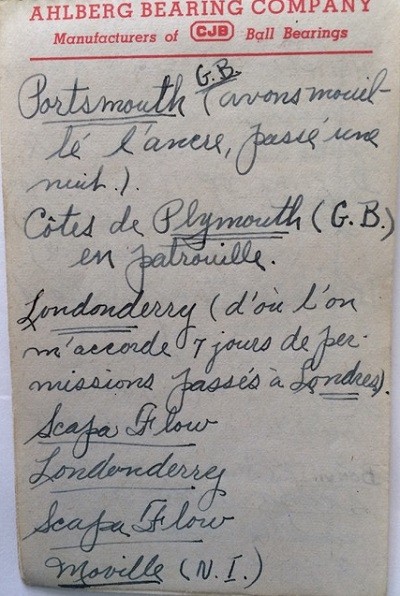 AHLBERG BEARING COMPANY
Manufacturers of CJB Ball Bearings
G.B.
Portsmouth (avons mouil-
lé l'ancre, passé une
nuit.).
Côtes de Plymouth (G.B.)
en patrouille.
Londonderry (d'où l'on
m'accorde 7 jours de per-
missions passés à Londres).
Scapa Flow
Londonderry
Scapa Flow
Moville (N.I.)